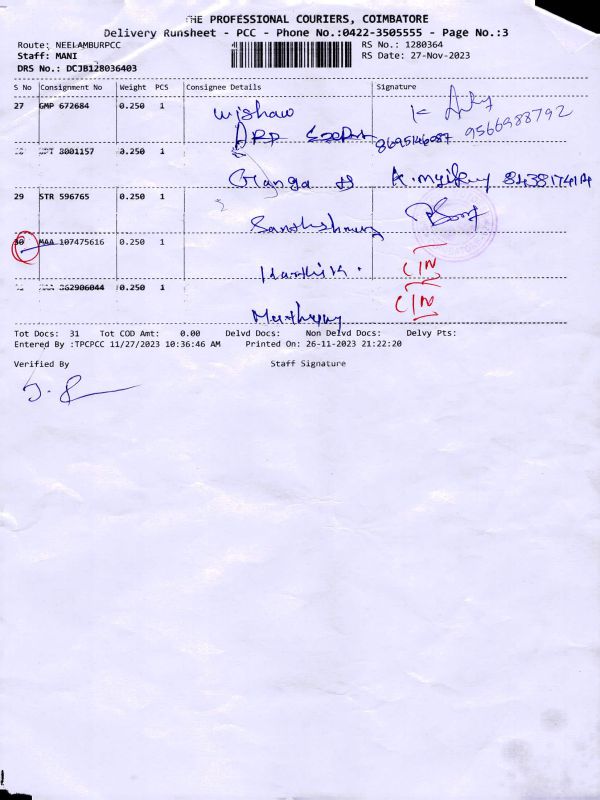 THE PROFESSIONAL COURIERS, COIMBATORE
Delivery Runsheet - PCC - Phone No.:0422-3505555 - Page No.:3
Route: NEELAMBURPCC RS No.: 1280364
Staff: MANI RS Date: 27-Nov-2023
DRS No.: DCJB128036403
S No Consignment No Weight PCS Consignee Details Signature
27 GMP 672684 0.250 1
9566988792
8695146087
3001157 0.250 1
Ganga
29 STR 596765 0.250 1
30 MAA 107475616 0.250 1
Karthik. C/N
362906044 0.250 1
C/N
Tot Docs: 31 Tot COD Amt: 0.00 Delvd Docs: Non Delvd Docs: Delvy Pts:
Entered By :TPCPCC 11/27/2023 10:36:46 AM Printed On: 26-11-2023 21:22:20
Verified By Staff Signature